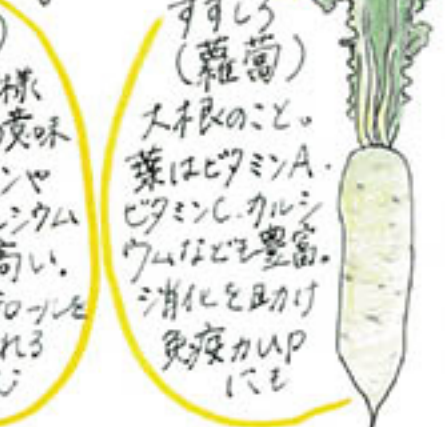 様
味
ンや
シウム
高い。
ロールを
れる
すずしろ
(蘿蔔)
大根のこと。
葉はビタミンA.
ビタミンC.カルシ
ウムなども豊富。
消化を助け
免疫力UP
にも